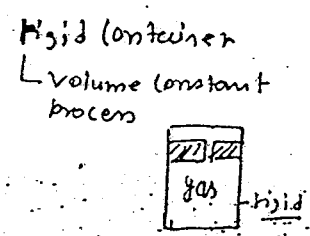 Rigid Container
Volume constant
process
gas
rigid